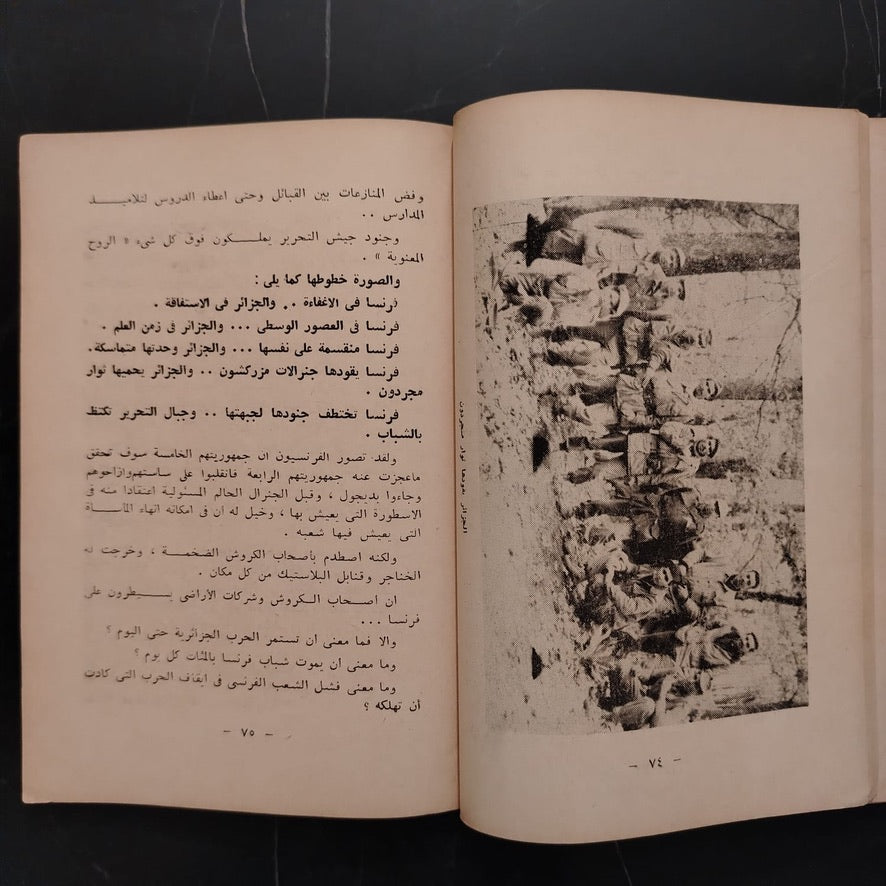 الجزائر يقودها ثوار مجردون
- ٧٤ -
وفض المنازعات بين القبائل وحتى اعطاء الدروس لتلاميـــذ
المدارس ..
وجنود جيش التحرير يملـــكون فوق كل شىء « الروح
المعنوية » .
والصورة خطوطها كما يلى :
فرنسا فى الاغفاءة .. والجزائر فى الاستفاقة .
فرنسا فى العصور الوسطى ... والجزائر فى زمن العلم .
فرنسا منقسمة على نفسها ... والجزائر وحدتها متماسكة.
فرنسا يقودها جنرالات مزركشون .. والجزائر يحميها ثوار
مجردون .
فرنسا تختطف جنودها لجبهتها .. وجبال التحرير تكتظ
بالشباب .
ولقد تصور الفرنسيون ان جمهوريتهم الخامسة سوف تحقق
ماعجزت عنه جمهوريتهم الرابعة فانقلبوا على ساستهم وازاحوهم
وجاءوا بديجول ، وقبل الجنرال الحالم المسئولية اعتقادا منه فى
الاسطورة التى يعيش بها ، وخيل له ان فى امكانه انهاء المأساة
التى يعيش فيها شعبه .
ولكنه اصطدم بأصحاب الكروش الضخمـــة ، وخرجت له
الخناجر وقنابل البلاستيك من كل مكان .
ان أصـحاب الـكروش وشركات الأراضى يسـيطرون على
فرنسا ...
والا فما معنى ان تستمر الحرب الجزائرية حتى اليوم ؟
وما معنى ان يموت شباب فرنسا بالمئات كل يوم ؟
وما معنى فشل الشعب الفرنسى فى ايقاف الحرب التى كادت
أن تهلكه ؟
- ٧٥ -